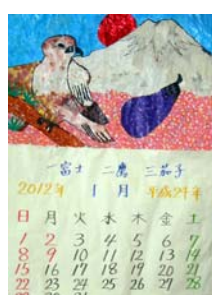 一富士 二鷹 三茄子
2012年 1月 平成24年
日 月 火 水 木 金 土
1 2 3 4 5 6 7
8 9 10 11 12 13 14
15 16 17 18 19 20 21
22 23 24 25 26 27 28
29 30 31